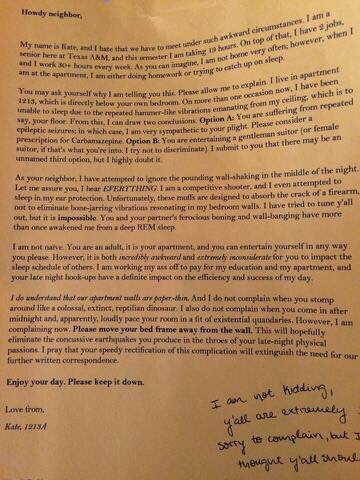 Howdy neighbor,
My name is Kate, and I hate that we have to meet under such awkward circumstances. I am a
senior here at Texas A&M, and this semester I am taking 19 hours. On top of that, I have 2 jobs,
and I work 30+ hours every week. As you can imagine, I am not home very often; however, when I
am at the apartment, I am either doing homework or trying to catch up on sleep.
You may ask yourself why I am telling you this. Please allow me to explain. I live in apartment
1213, which is directly below your own bedroom. On more than one occasion now, I have been
unable to sleep due to the repeated hammer-like vibrations emanating from my ceiling, which is to
say, your floor. From this, I can draw two conclusions. Option A: You are suffering from repeated
epileptic seizures; in which case, I am very sympathetic to your plight. Please consider a
prescription for Carbamazepine. Option B: You are entertaining a gentleman suitor (or female
suitor, if that's what you're into. I try not to discriminate). I submit to you that there may be an
unnamed third option, but I highly doubt it.
As your neighbor, I have attempted to ignore the pounding wall-shaking in the middle of the night.
Let me assure you, I hear EVERYTHING. I am a competitive shooter, and I even attempted to
sleep in my ear protection. Unfortunately, these muffs are designed to absorb the crack of a firearm,
not to eliminate bone-jarring vibrations resonating in my bedroom walls. I have tried to tune y'all
out, but it is impossible. You and your partner's ferocious boning and wall-banging have more
than once awakened me from a deep REM sleep.
I am not naïve. You are an adult, it is your apartment, and you can entertain yourself in any way
you please. However, it is both incredibly awkward and extremely inconsiderate for you to impact the
sleep schedule of others. I am working my ass off to pay for my education and my apartment, and
your late night hook-ups have a definite impact on the efficiency and success of my day.
I do understand that our apartment walls are paper-thin. And I do not complain when you stomp
around like a colossal, extinct, reptilian dinosaur. I also do not complain when you come in after
midnight and, apparently, loudly pace your room in a fit of existential quandaries. However, I am
complaining now. Please move your bed frame away from the wall. This will hopefully
eliminate the concussive earthquakes you produce in the throes of your late-night physical
passions. I pray that your speedy rectification of this complication will extinguish the need for our
further written correspondence.
Enjoy your day. Please keep it down.
Love from,
Kate, 1213A
I am not kidding,
y'all are extremely
sorry to complain, but I
thought y'all shoul